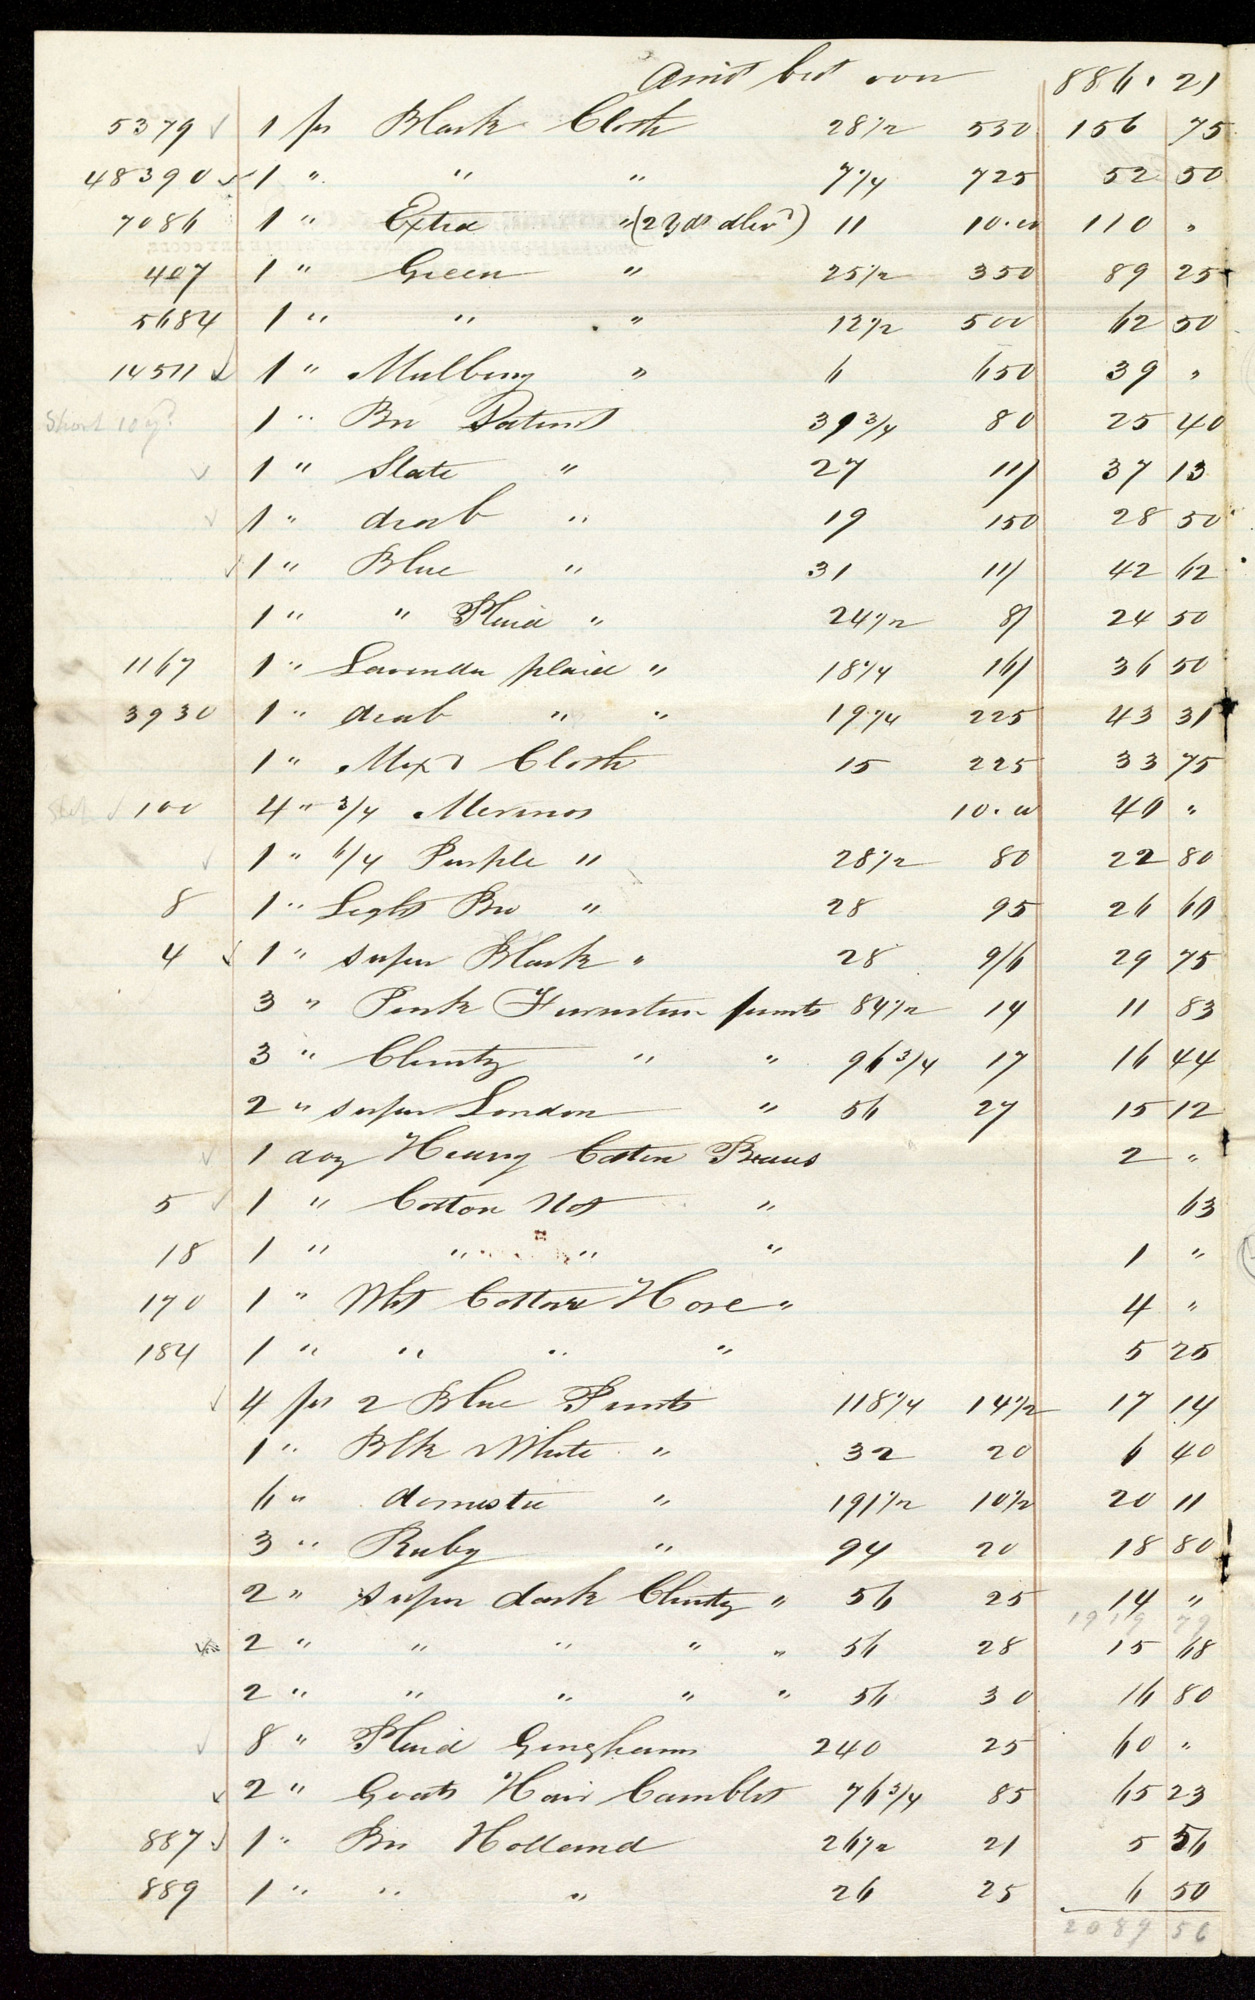 Am't bro't over 886. 21
5379 1 ps Black Cloth 28 1/2 550 156 75
48390 1 " " " 7 1/4 725 52 50
7086 1 " Extra " (2 yds dler') 11 10.00 110 "
407 1 " Green " 25 1/2 350 89 25
5684 1 " " " 12 1/2 500 62 50
14511 1 " Mulberry " 6 650 39 "
Short 10 y? 1 " Bro Satinet 31 3/4 80 25 40
1 " Slate " 27 11/ 37 13
1 " drab " 19 150 28 50
1 " Blue " 31 11/ 42 62
1 " " Plaid " 24 1/2 8/ 24 50
1167 1 " Lavender plaid " 18 1/4 16/ 36 50
3930 1 " drab " " 19 1/4 225 43 31
1 " Mix'd Cloth 15 225 33 75
100 4 " 3/4 Merinos 10.00 40 "
1 " 6/4 Purple " 28 1/2 80 22 80
8 1 " Light Bro " 28 95 26 60
4 1 " super Black " 28 9/6 29 75
3 " Pink Furniture prints 84 1/2 14 11 83
3 " Chintz " " 96 3/4 17 16 44
2 " super London " 56 27 15 12
1 doz Heavy Cotton Braces 2 "
5 1 " Cotton Net " 63
18 1 " " " " 1 "
170 1 " Wht Cotton Hose " 4 "
184 1 " " " " 5 25
4 ps 2 Blue Prints 118 1/4 14 1/2 17 14
1 " Blk & White " 32 20 6 40
6 " domestic " 191 1/2 10 1/2 20 11
3 " Ruby " 94 20 18 80
2 " super dark Chintz " 56 25 14 "
1919 79
2 " " " " " 56 28 15 68
2 " " " " " 56 30 16 80
8 " Plaid Ginghams 240 25 60 "
2 " Goats Hair Camblet 76 3/4 85 65 23
887 1 " Bro Holland 26 1/2 21 5 56
889 1 " " " 26 25 6 50
2089 56